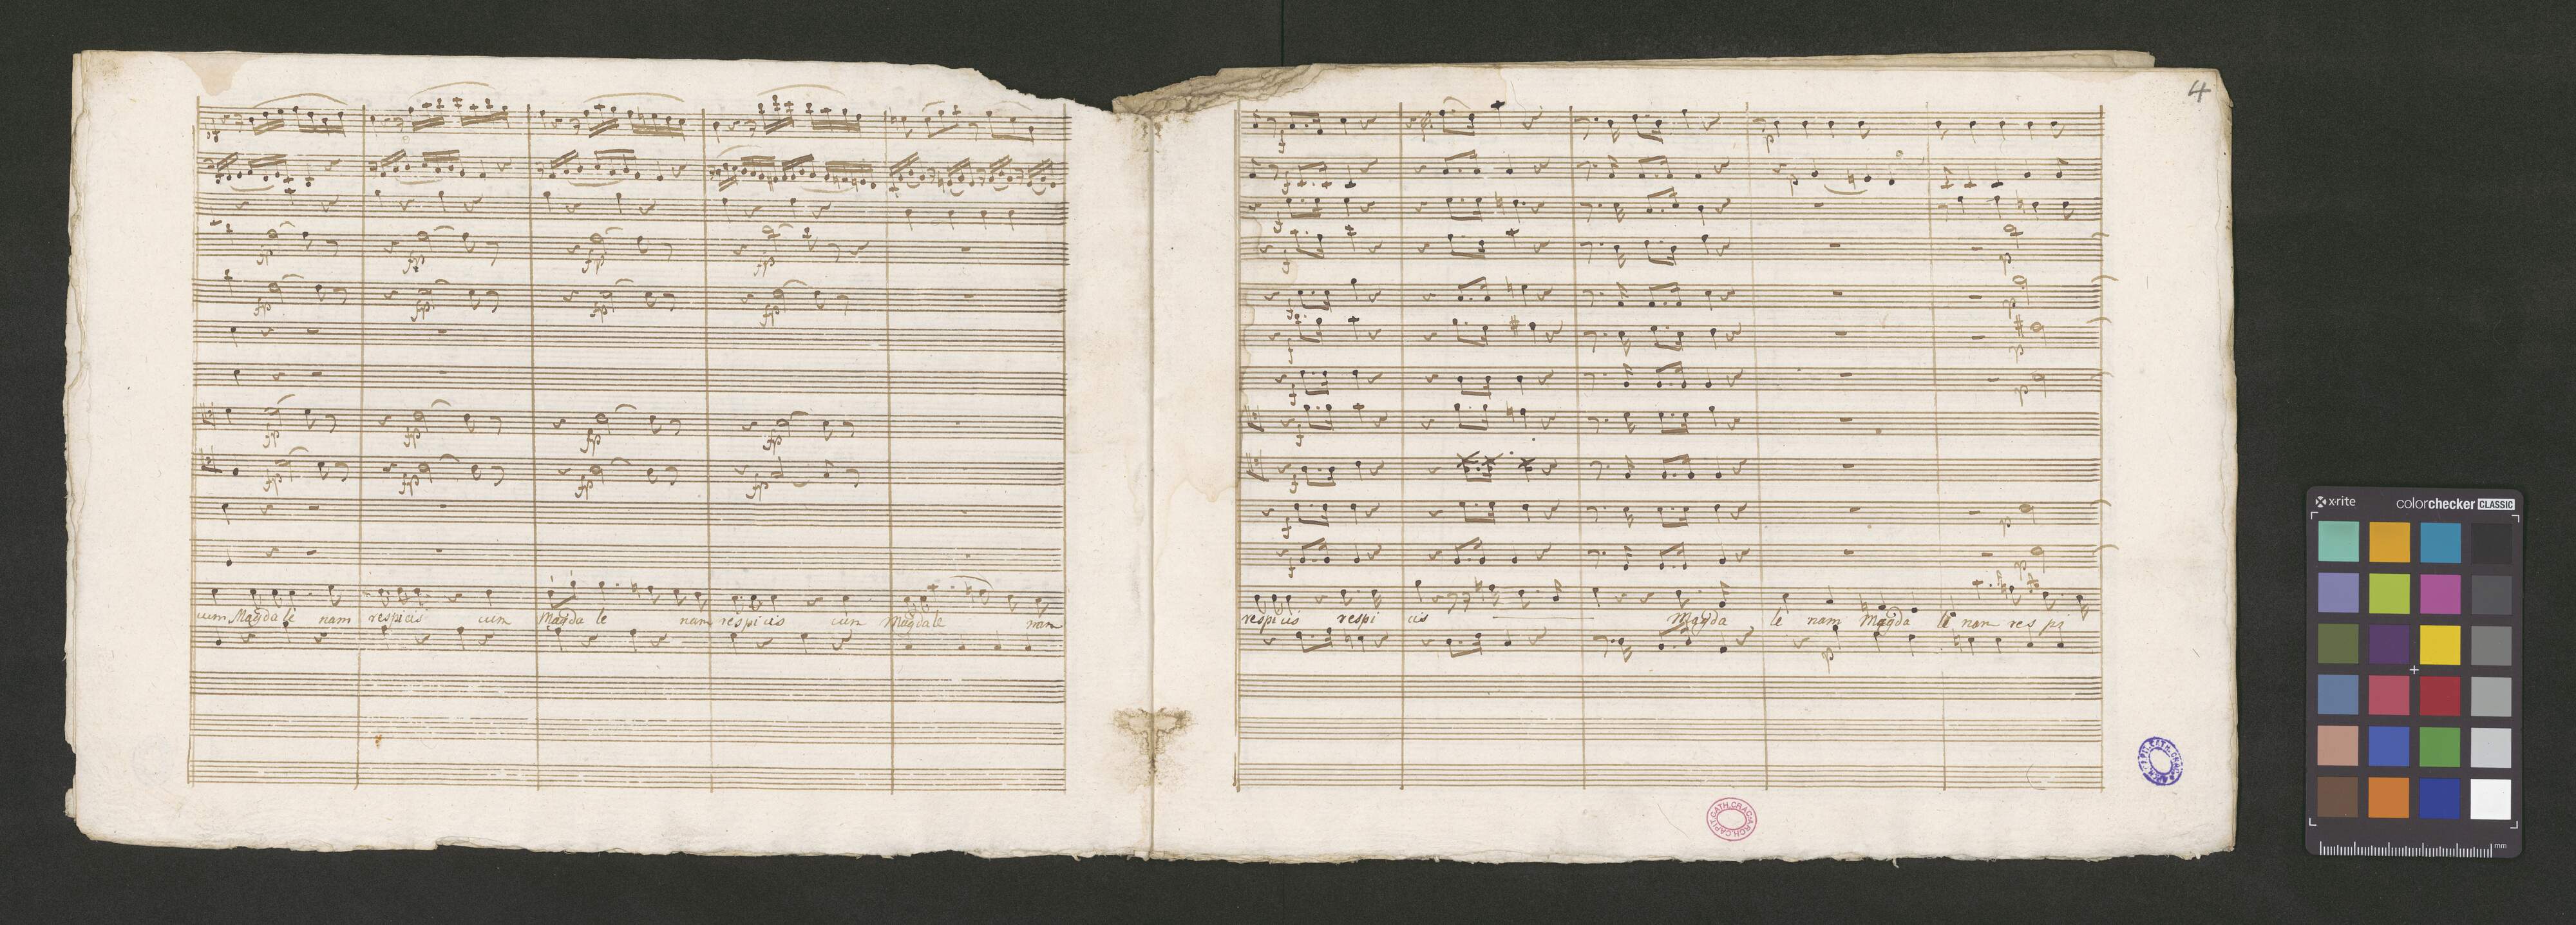 4
fp fp fp fp
fp fp fp fp
fp fp fp fp
fp fp fp fp
cum Magdale nam respicis cum Magda le nam respicis cum Magdale nam
f p
f p
f
f p
f p
f p
f p
f
f
f p
f p
respicis respi cis Magda le nam Magda le nam res pi
p
ARCH.CAPIT.CATH.CRAC.
ARCH.CAPIT.CATH.CRAC.
x-rite colorchecker CLASSIC
mm